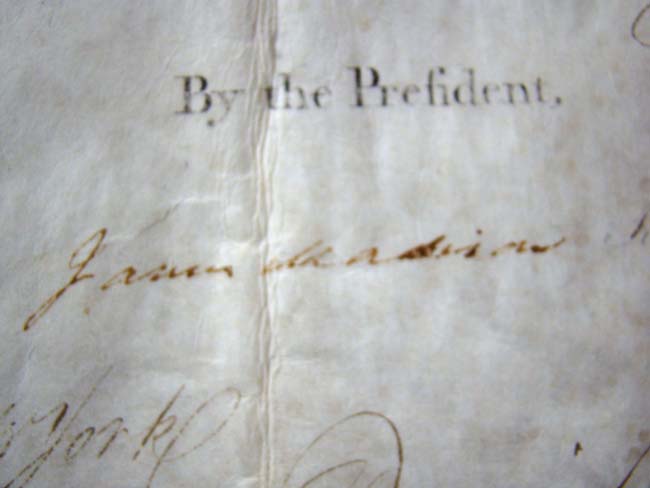 By the Preſident,
James Madison
York